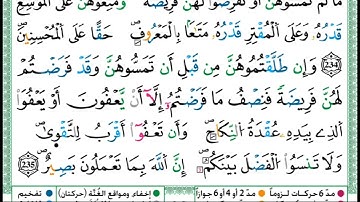 مَا لَمْ تَمَسُّوهُنَّ أَوْ تَفْرِضُوا لَهُنَّ فَرِيضَةً وَمَتِّعُوهُنَّ عَلَى اَلْمُوسِعِ
قَدْرُهُۥ وَعَلَى اَلْمُقْتِرِ قَدْرُهُۥ مَتَٰعًا بِالْمَعْرُوفِ حَقًّا عَلَى اَلْمُحْسِنِينَ
234 وَإِن طَلَّقْتُمُوهُنَّ مِن قَبْلِ أَن تَمَسُّوهُنَّ وَقَدْ فَرَضْتُمْ
لَهُنَّ فَرِيضَةً فَنِصْفُ مَا فَرَضْتُمُۥ إِلَّا أَن يَعْفُونَ أَوْ يَعْفُوَا
اَلذِے بِيَدِهِۦ عُقْدَةُ اُلنِّكَاحِ وَأَن تَعْفُوا أَقْرَبُ لِلتَّقْوَىٰ
وَلَا تَنسَوُا اُلْفَضْلَ بَيْنَكُمُۥ إِنَّ اَللَّهَ بِمَا تَعْمَلُونَ بَصِيرٌ 235
مدّ 6 حركات لزوماً مدّ 2 أو 4 أو 6 جوازاً إخفاء ومواقع الغُنَّة (حركتان) تفخيم